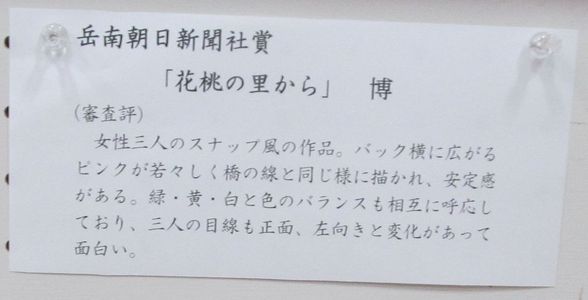 岳南朝日新聞社賞
「花桃の里から」　博
（審査評）
　女性三人のスナップ風の作品。バック横に広がる
ピンクが若々しく橋の線と同じ様に描かれ、安定感
がある。緑・黄・白と色のバランスも相互に呼応し
ており、三人の目線も正面、左向きと変化があって
面白い。